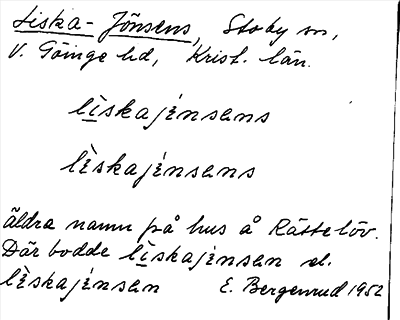 Liska-Jönsens, Stoby sn,
V. Göinge hd, Krist. län.
lìskajinsens
lèskajinsens
äldre namn på hus å Rättelöv.
Där bodde lìskajinsen el.
lèskajinsen E. Bergenrud 1952